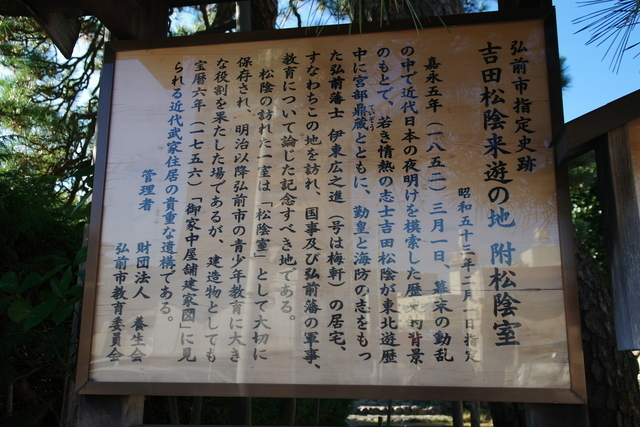 弘前市指定史跡
吉田松陰来遊の地 附松陰室
昭和五十三年二月一日指定
嘉永五年（一八五二）三月一日、幕末の動乱
の中で近代日本の夜明けを模索した歴史的背景
のもとで、若き情熱の志士吉田松陰が東北遊歴
中に宮部鼎蔵とともに、勤皇と海防の志をもっ
ていぞう
た弘前藩士 伊東広之進（号は梅軒）の居宅、
すなわちこの地を訪れ、国事及び弘前藩の軍事、
教育について論じた記念すべき地である。
松陰の訪れた一室は「松陰室」として大切に
保存され、明治以降弘前市の青少年教育に大き
な役割を果たした場であるが、建造物としても
宝暦六年（一七五六）「御家中屋舗建家図」に見
られる近代武家住居の貴重な遺構である。
管理者
財団法人 養生会
弘前市教育委員会